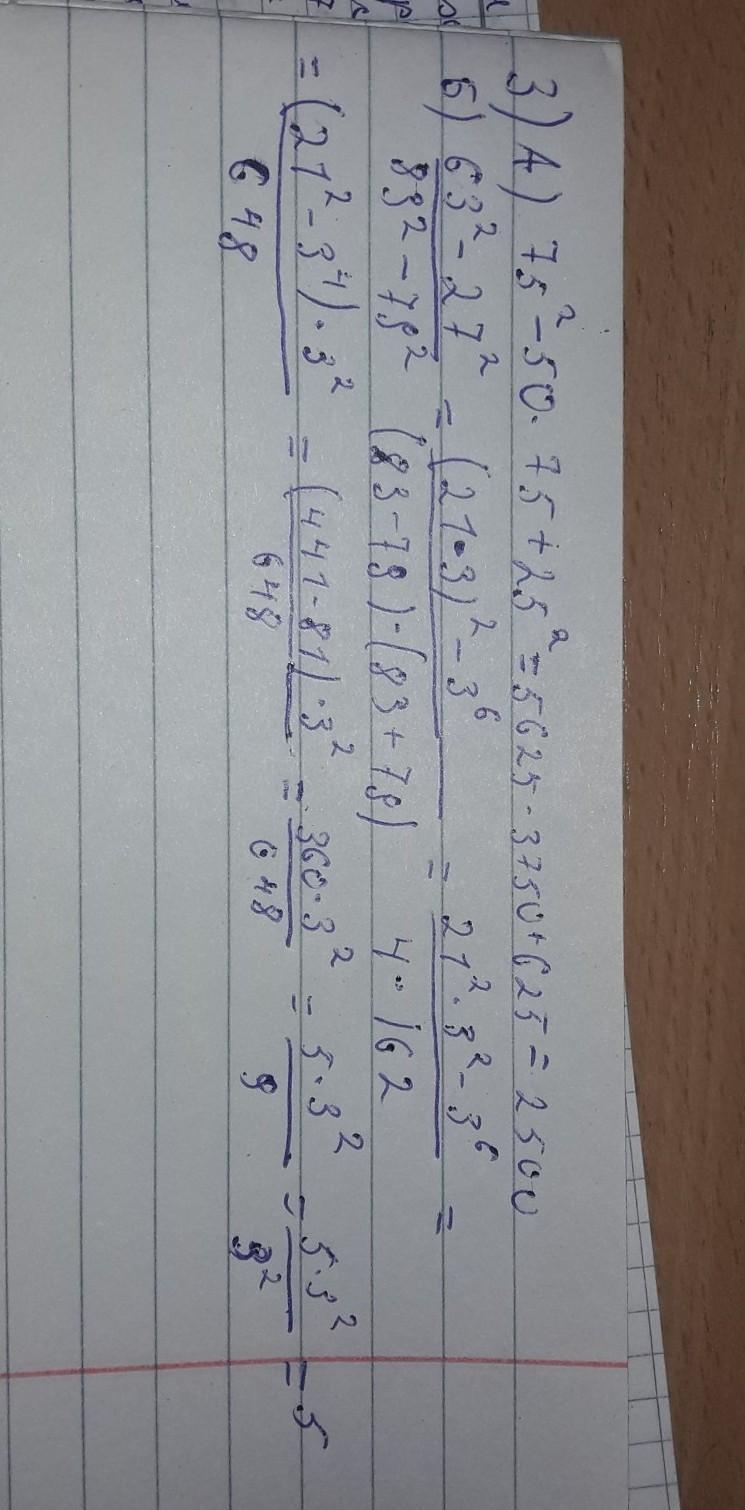 3) А) 75² - 50 · 75 + 25² = 5625 - 3750 + 625 = 2500
б) 63² - 27² / 83² - 79² = (21·3)² - 3⁶ / (83-79)·(83+79) = 21² · 3² - 3⁶ / 4 · 162 =
= (21² - 3⁴) · 3² / 648 = (441-81) · 3² / 648 = 360 · 3² / 648 = 5 · 3² / 9 = 5 · 3² / 3² = 5